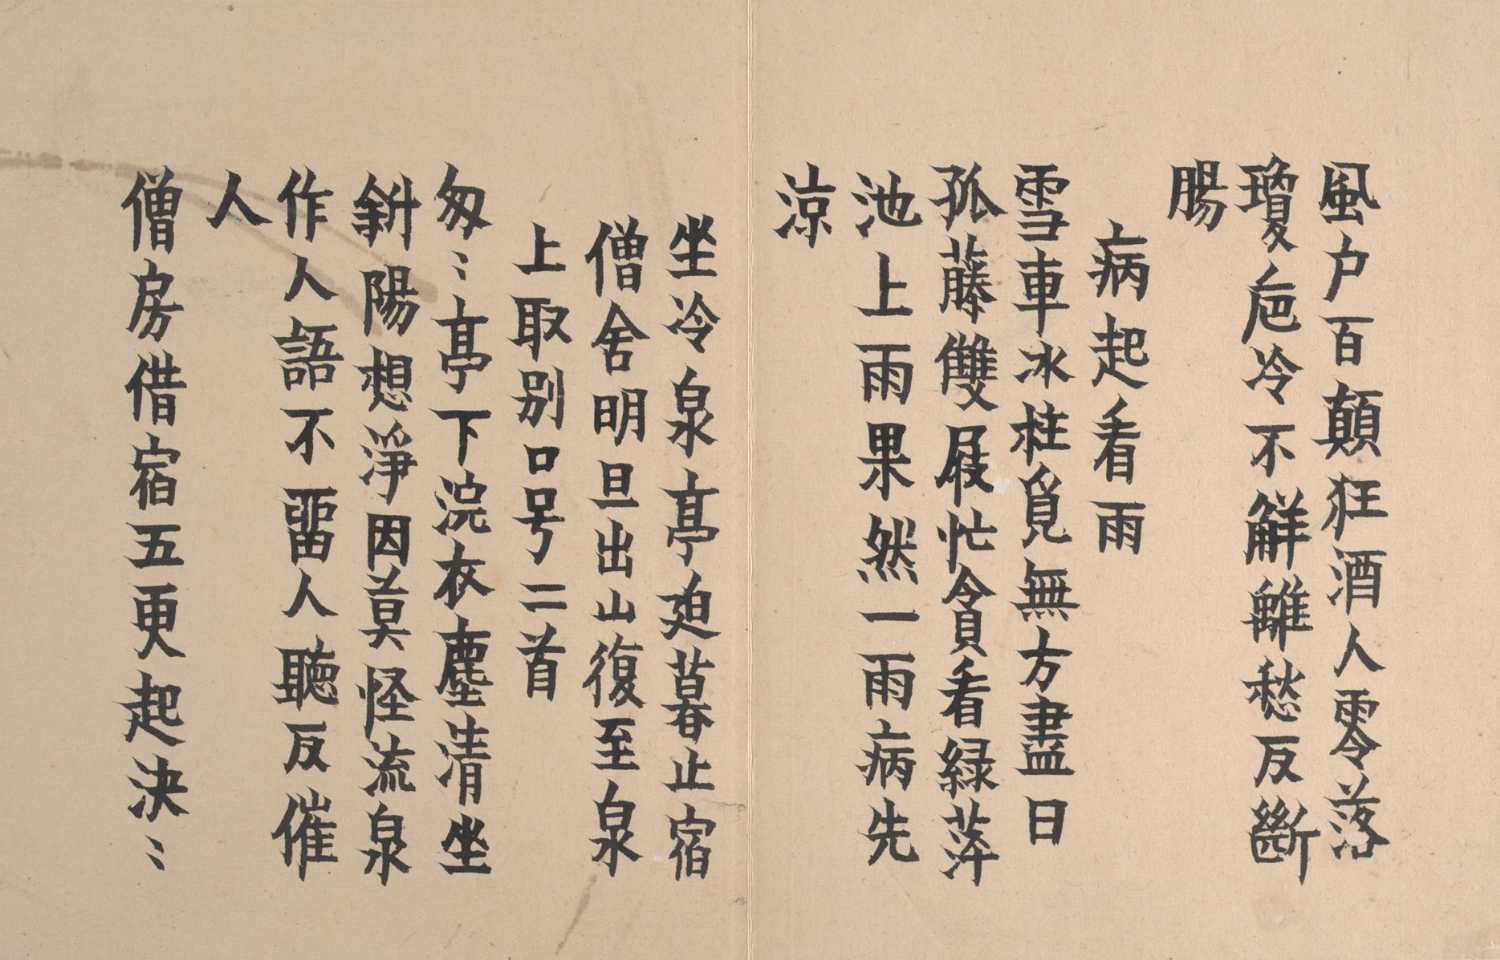 風户百顛狂酒人零落
瓊卮冷不觧雝愁反斷
腸
病起看雨
雪車冰柱覓無方盡日
孤藤雙屐忙貪看緑萍
池上雨果然一雨病先
涼
坐冷泉亭廹暮止宿
僧舍明旦出山復至泉
上取别口号二首
匆〻亭下浣衣塵清坐
斜陽想淨因莫怪流泉
作人語不畱人聽反催
人
僧房借宿五更起決〻